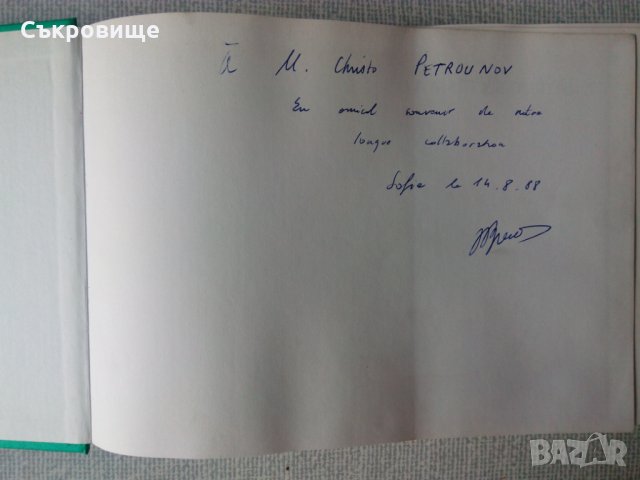 Съкровище
À M. Christo PETROUNOV
En amical souvenir de notre
longue collaboration
Sofia le 14.8.88
BAZAR